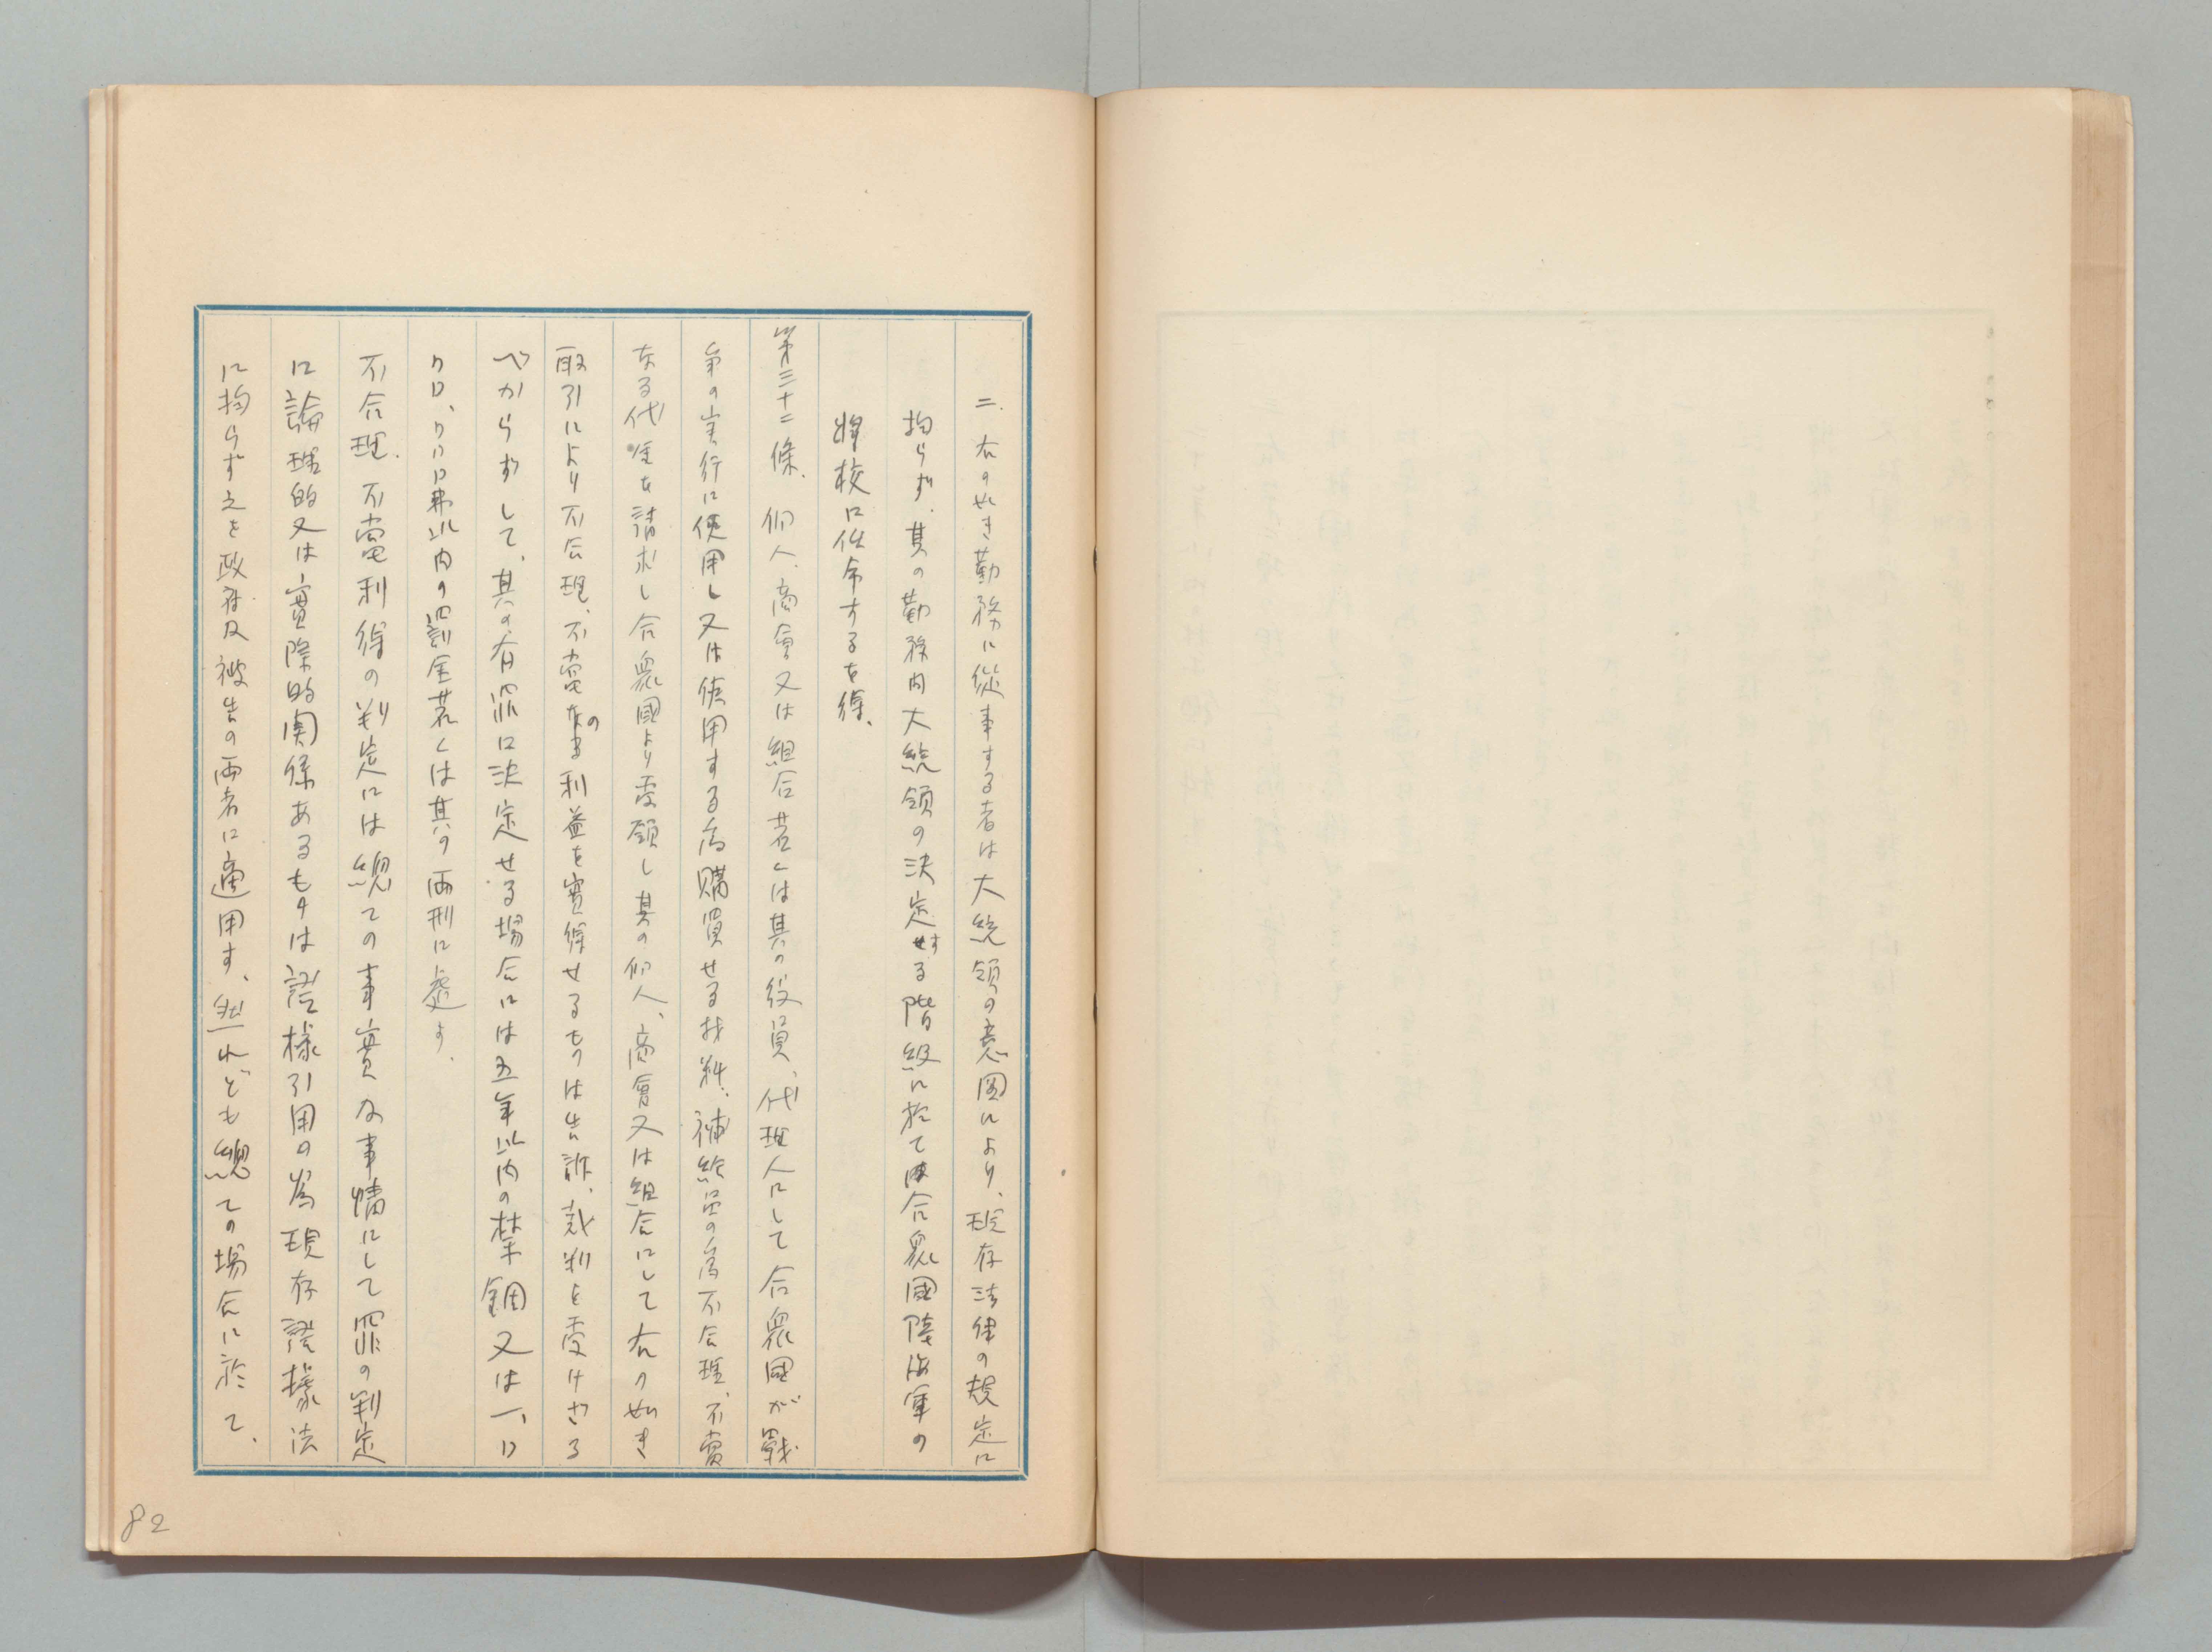 二.右の如き勤務に從事する者は大統領の意図により、現存法律の規定に
拘らず.其の勤務内大統領の決定する階級に於ては合衆國陸海軍の
將校に任命するを得、
第三十二條.個人.商會又は組合若くは其の役員、代理人にして合衆國が戰
爭の実行に使用し又は使用する為購買せる材料.補給品の為不合理、不當
なる代金を請求し合衆國より受領し其の個人、商會又は組合にして右の如き
取引により不合理、不當の利益を實得せるものは告訴、裁判を受けざる
べからずして、其の有罪に決定せる場合には五年以内の禁錮又は一、〇
〇〇、〇〇〇弗以内の罰金若くは其の両刑に處す.
不合理.不當利得の判定には總ての事實及事情にして罪の判定
に論理的又は實際的関係あるものは證據引用の為現存證據法
に拘らず之を政府及被告の両者に適用す、然れども總ての場合に於て、
82